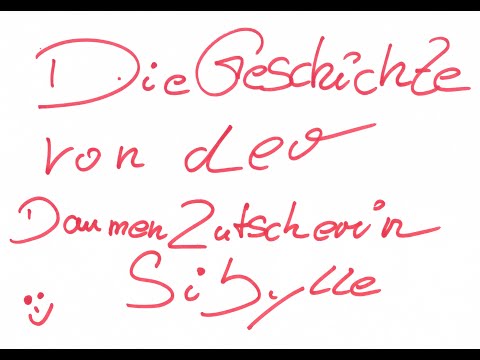 Die Geschichte
von der
Daumen Lutscherin
Sibylle